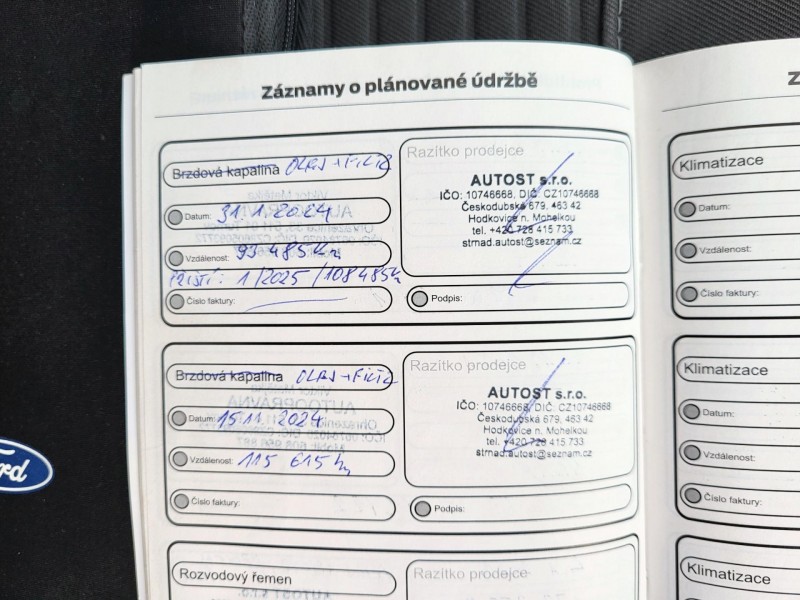 Záznamy o plánované údržbě
Z
Brzdová kapalina OLEJ+FILTR
Datum: 31.1.2024
Vzdálenost: 93 485 km
PŘÍŠTÍ: 1/2025 /108 485 km
Číslo faktury:
Razítko prodejce
AUTOST s.r.o.
IČO: 10746668, DIČ: CZ10746668
Českodubská 679, 463 42
Hodkovice n. Mohelkou
tel. +420 728 415 733
strnad.autost@seznam.cz
Podpis:
Klimatizace
Datum:
Vzdálenost:
Číslo faktury:
Brzdová kapalina OLEJ+FILTR
Datum: 15.11.2024
Vzdálenost: 115 615 km
Číslo faktury:
Razítko prodejce
AUTOST s.r.o.
IČO: 10746668, DIČ: CZ10746668
Českodubská 679, 463 42
Hodkovice n. Mohelkou
tel. +420 728 415 733
strnad.autost@seznam.cz
Podpis:
Klimatizace
Datum:
Vzdálenost:
Číslo faktury:
Rozvodový řemen
Razítko prodejce
Klimatizace
Ford